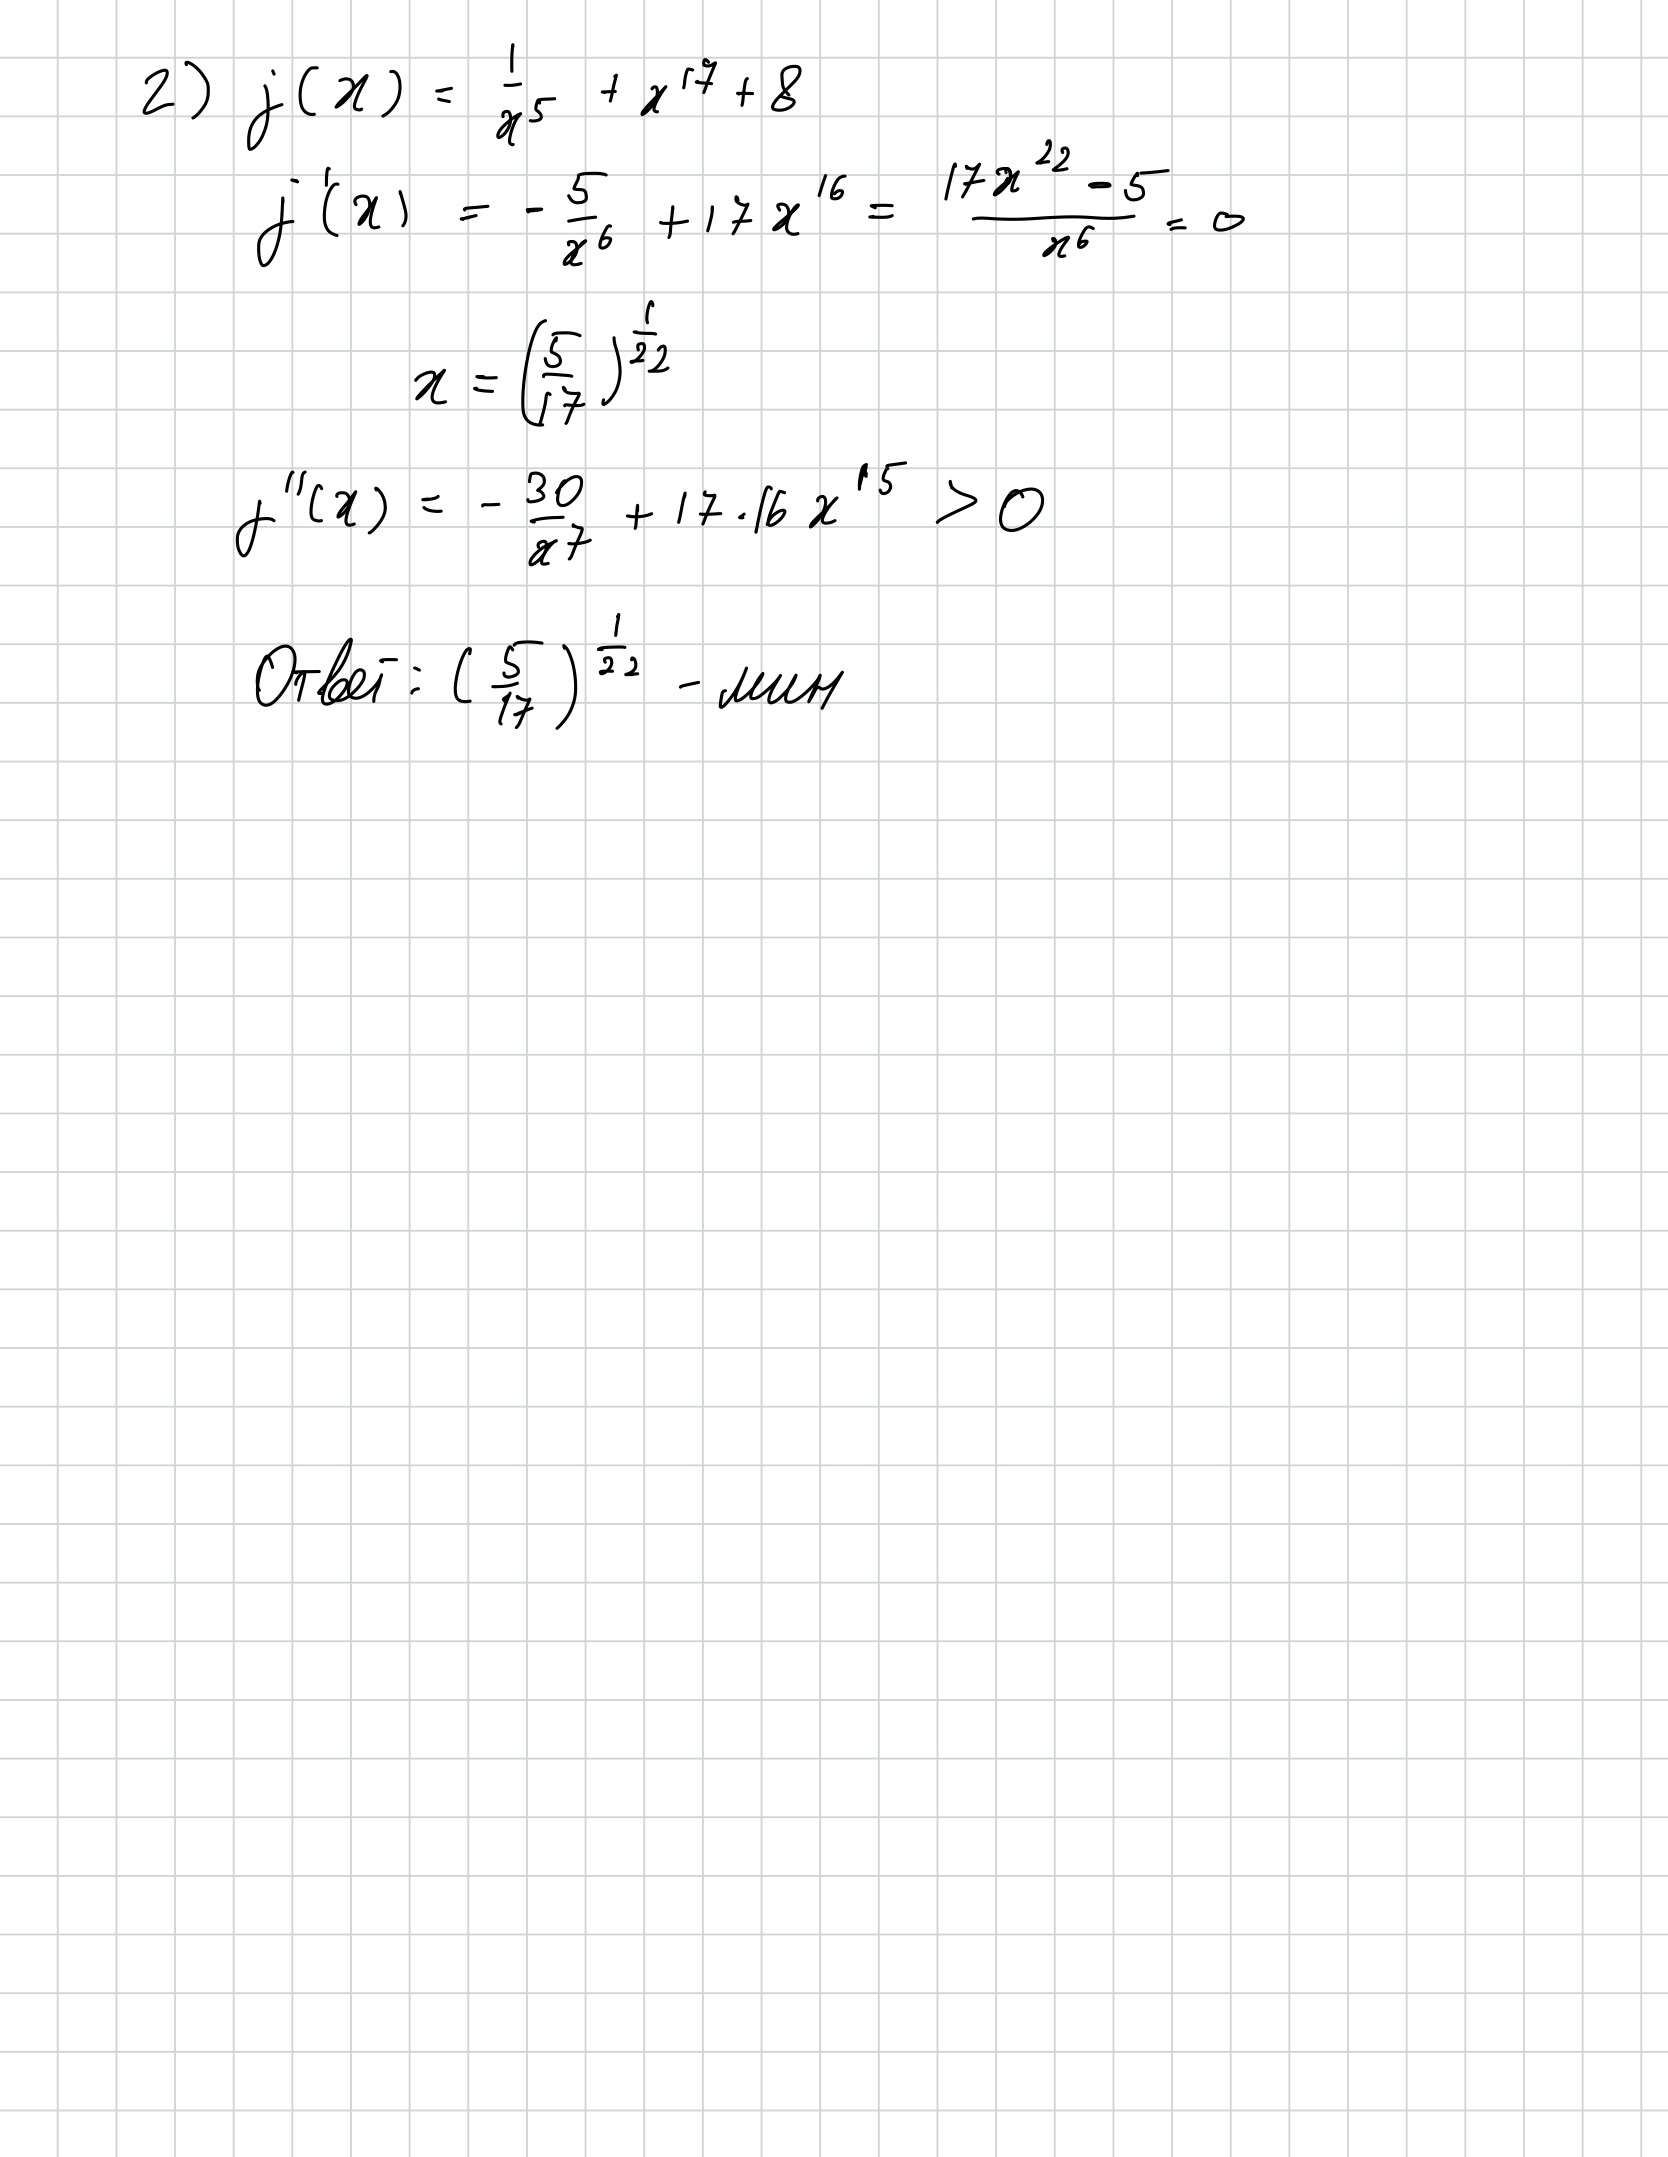 2) j(x) = 1/x^5 + x^17 + 8
j'(x) = - 5/x^6 + 17x^16 = (17x^22 - 5)/x^6 = 0
x = (5/17)^(1/22)
j''(x) = - 30/x^7 + 17·16x^15 > 0
Ответ: (5/17)^(1/22) - мин